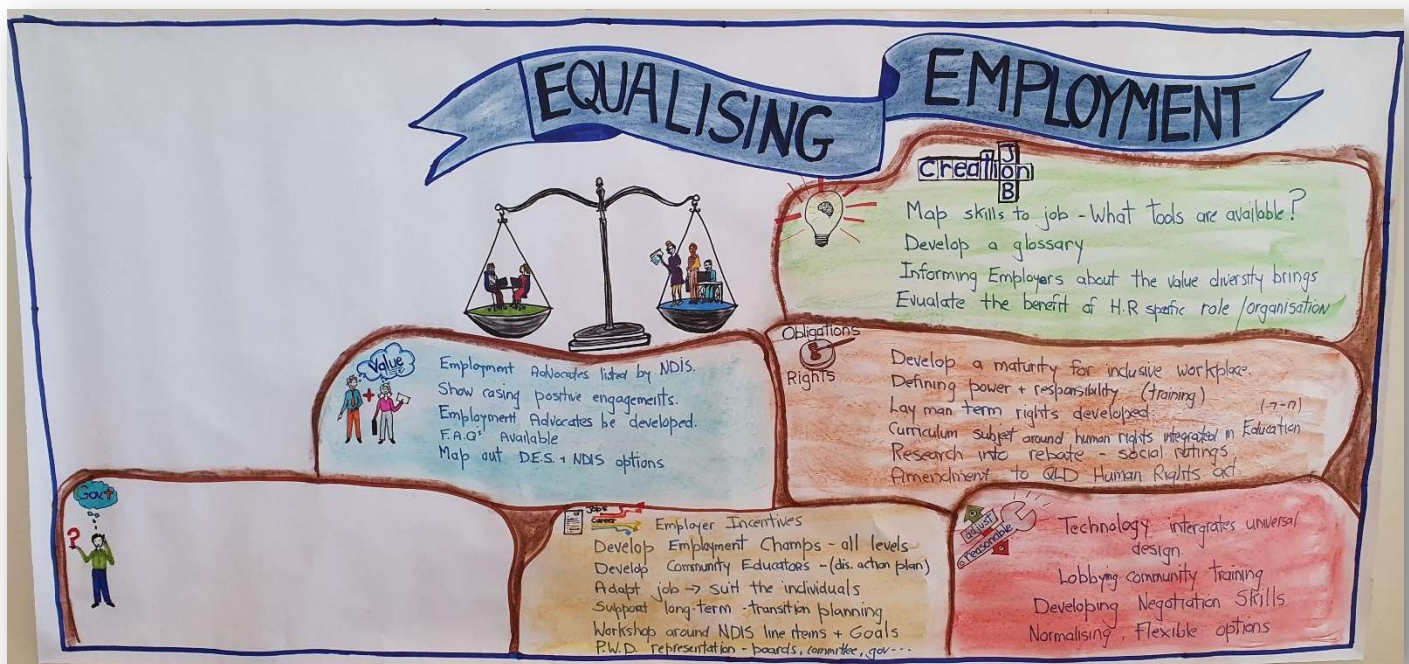 EQUALISING EMPLOYMENT
Creation
JOB
Map skills to job - What tools are available?
Develop a glossary
Informing Employers about the value diversity brings
Evualate the benefit of H.R spefic role /organisation
Value
Employment Advocates listed by NDIS.
Show casing positive engagements.
Employment Advocates be developed.
F.A.Q's Available
Map out D.E.S. + NDIS options
Obligations
Rights
Develop a maturity for inclusive workplace.
Defining power + responsibility (training)
Lay man term rights developed.
Curriculum subject around human rights integrated in Education
Research into rebate - social ratings
Amendment to QLD Human Rights act.
Gov+
?
Jobs
Career
Employer Incentives
Develop Employment Champs - all levels
Develop Community Educators - (dis. action plan)
Adapt job → suit the individuals
Support long-term - transition planning
Workshop around NDIS line items + Goals
P.W.D. representation - boards, committee, gov---
adjust
reasonable
Technology intergrates universal
design
Lobbying community training
Developing Negotiation Skills
Normalising, Flexible options